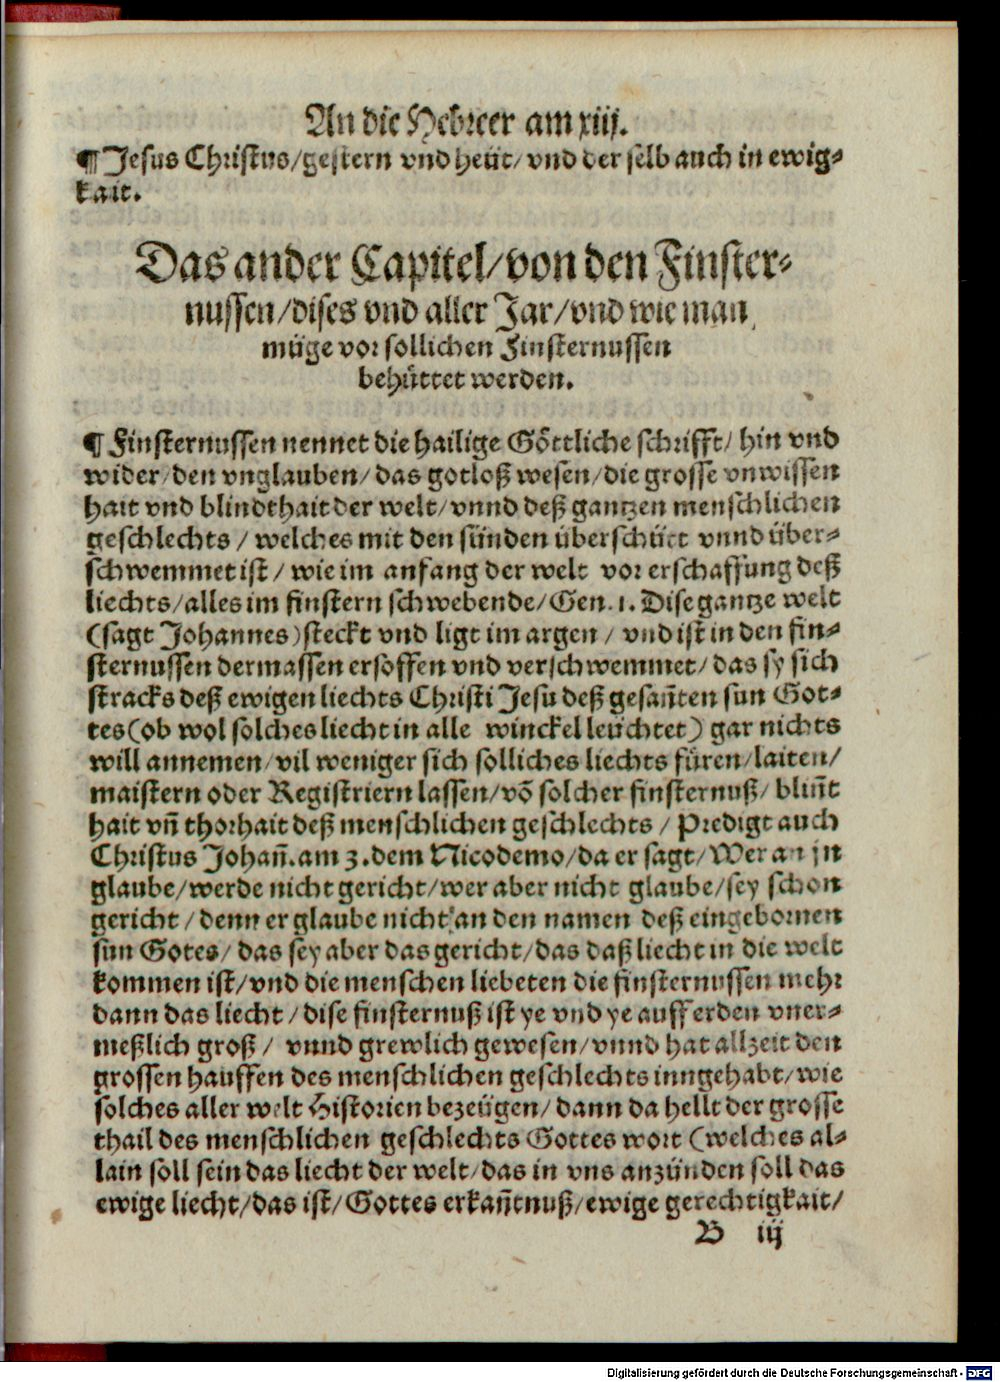 An die Hebreer am xiij.
¶ Jesus Christus/gestern vnd heüt/vnd der selb auch in ewig-
kait.
Das ander Capitel/von den Finster-
nussen/dises vnd aller Jar/vnd wie man
müge vor sollichen Finsternussen
behüttet werden.
¶ Finsternussen nennet die hailige Göttliche schrifft/ hin vnd
wider/den vnglauben/das gotloß wesen/die grosse vnwissen
hait vnd blindthait der welt/vnnd deß gantzen menschlichen
geschlechts/ welches mit den sünden überschütt vnnd über-
schwemmet ist/ wie im anfang der welt vor erschaffung deß
liechts/alles im finstern schwebende/Gen. 1. Dise gantze welt
(sagt Johannes) steckt vnd ligt im argen/ vnd ist in den fin-
sternussen dermassen ersoffen vnd verschwemmet/das sy sich
stracks deß ewigen liechts Christi Jesu deß gesañten sun Got-
tes(ob wol solches liecht in alle winckel leüchtet) gar nichts
will annemen/vil weniger sich solliches liechts füren/laiten/
maistern oder Registriern lassen/võ solcher finsternuß/ blint̃
hait vñ thorhait deß menschlichen geschlechts/ Predigt auch
Christus Johañ.am 3.dem Nicodemo/da er sagt/Wer an jn
glaube/werde nicht gericht/wer aber nicht glaube/sey schon
gericht/denn er glaube nicht an den namen deß eingebornen
sun Gotes/ das sey aber das gericht/das daß liecht in die welt
kommen ist/vnd die menschen liebeten die finsternussen mehr
dann das liecht/dise finsternuß ist ye vnd ye auff erden vner-
meßlich groß/ vnnd grewlich gewesen/vnnd hat allzeit den
grossen hauffen des menschlichen geschlechts inngehabt/wie
solches aller welt Historien bezeügen/dann da hellt der grosse
thail des menschlichen geschlechts Gottes wort (welches al-
lain soll sein das liecht der welt/das in vns anzünden soll das
ewige liecht/das ist/Gottes erkañtnuß/ewige gerechtigkait/
B iij
Digitalisierung gefördert durch die Deutsche Forschungsgemeinschaft - DFG